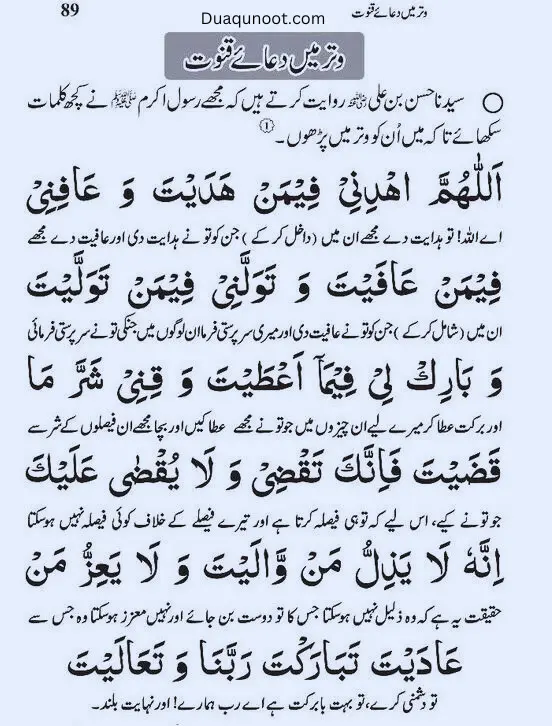 89 Duaqunoot.com وتر میں دعائے قنوت
وتر میں دعائے قنوت
سیدنا حسن بن علی رضی اللہ عنہ روایت کرتے ہیں کہ مجھے رسول اکرم ﷺ نے کچھ کلمات
سکھائے تاکہ میں اُن کو وتر میں پڑھوں۔ ①
اَللّٰهُمَّ اهْدِنِیْ فِیْمَنْ هَدَیْتَ وَ عَافِنِیْ
اے اللہ! تو ہدایت دے مجھے ان میں (داخل کر کے) جن کو تو نے ہدایت دی اور عافیت دے مجھے
فِیْمَنْ عَافَیْتَ وَ تَوَلَّنِیْ فِیْمَنْ تَوَلَّیْتَ
ان میں (شامل کر کے) جن کو تو نے عافیت دی اور میری سرپرستی فرما ان لوگوں میں جنکی تو نے سرپرستی فرمائی
وَ بَارِكْ لِیْ فِیْمَاۤ اَعْطَیْتَ وَ قِنِیْ شَرَّ مَا
اور برکت عطا کر میرے لیے ان چیزوں میں جو تو نے مجھے عطا کیں اور بچا مجھے ان فیصلوں کے شر سے
قَضَیْتَ فَاِنَّكَ تَقْضِیْ وَ لَا یُقْضٰی عَلَیْكَ
جو تو نے کیے، اس لیے کہ تو ہی فیصلہ کرتا ہے اور تیرے فیصلے کے خلاف کوئی فیصلہ نہیں ہو سکتا
اِنَّهٗ لَا یَذِلُّ مَنْ وَّالَیْتَ وَ لَا یَعِزُّ مَنْ
حقیقت یہ ہے کہ وہ ذلیل نہیں ہو سکتا جس کا تو دوست بن جائے اور نہیں معزز ہو سکتا وہ جس سے
عَادَیْتَ تَبَارَكْتَ رَبَّنَا وَ تَعَالَیْتَ
تو دشمنی کرے، تو بہت بابرکت ہے اے رب ہمارے! اور نہایت بلند۔